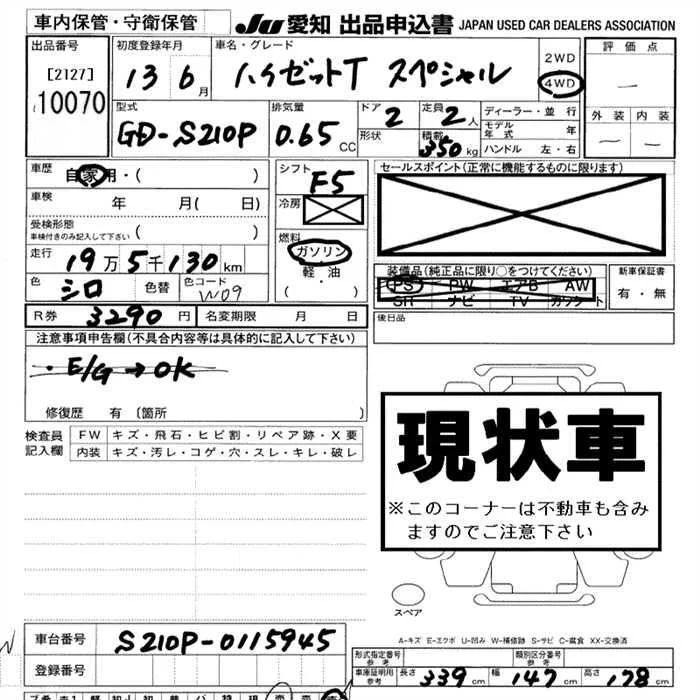 車内保管・守衛保管
JU 愛知 出品申込書 JAPAN USED CAR DEALERS ASSOCIATION
出品番号 初度登録年月 車名・グレード 2WD 評価点
[2127] 13 6月 ハイゼットT スペシャル 4WD —
10070 外装 内装
型式 排気量 ドア 2 定員 2人 ディーラー・並行
GD-S210P 0.65CC 形状 積載 350kg モデル年式 年 — —
ハンドル 左・右
車歴 自家用・( ) シフト F5 セールスポイント(正常に機能するものに限ります)
車検 年 月( 日) 冷房
受検形態
車検付きのみ記入して下さい ( ) 燃料
ガソリン
走行 19万5千130km 軽・油 装備品(純正品に限り○をつけてください) 新車保証書
色 シロ 色替 色コード W09 ( ) PS PW エアB AW 有・無
SR ナビ TV カワシート
R券 3290円 名変期限 月 日 後日品
注意事項申告欄(不具合内容等は具体的に記入して下さい)
・E/G→OK
修復歴 有 〔箇所 〕
現状車
※このコーナーは不動車も含み
ますのでご注意下さい
検査員 FW キズ・飛石・ヒビ割・リペア跡・X要
記入欄 内装 キズ・汚レ・コゲ・穴・スレ・キレ・破レ
スペア
A-キズ E-エクボ U-凹み W-補修跡 S-サビ C-腐食 XX-交換済
車台番号 S210P-0115945
形式指定番号 参考 類別区分番号 参考
登録番号 車庫証明用参考 長さ 339cm 幅 147cm 高さ 178cm